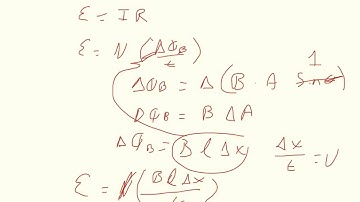 ε = IR
ε = N (ΔΦB/t)
ΔΦB = Δ(B · A sinθ) 1
ΔΦB = B ΔA
ΔΦB = B l Δx   Δx/t = v
ε = N(B l Δx/t)